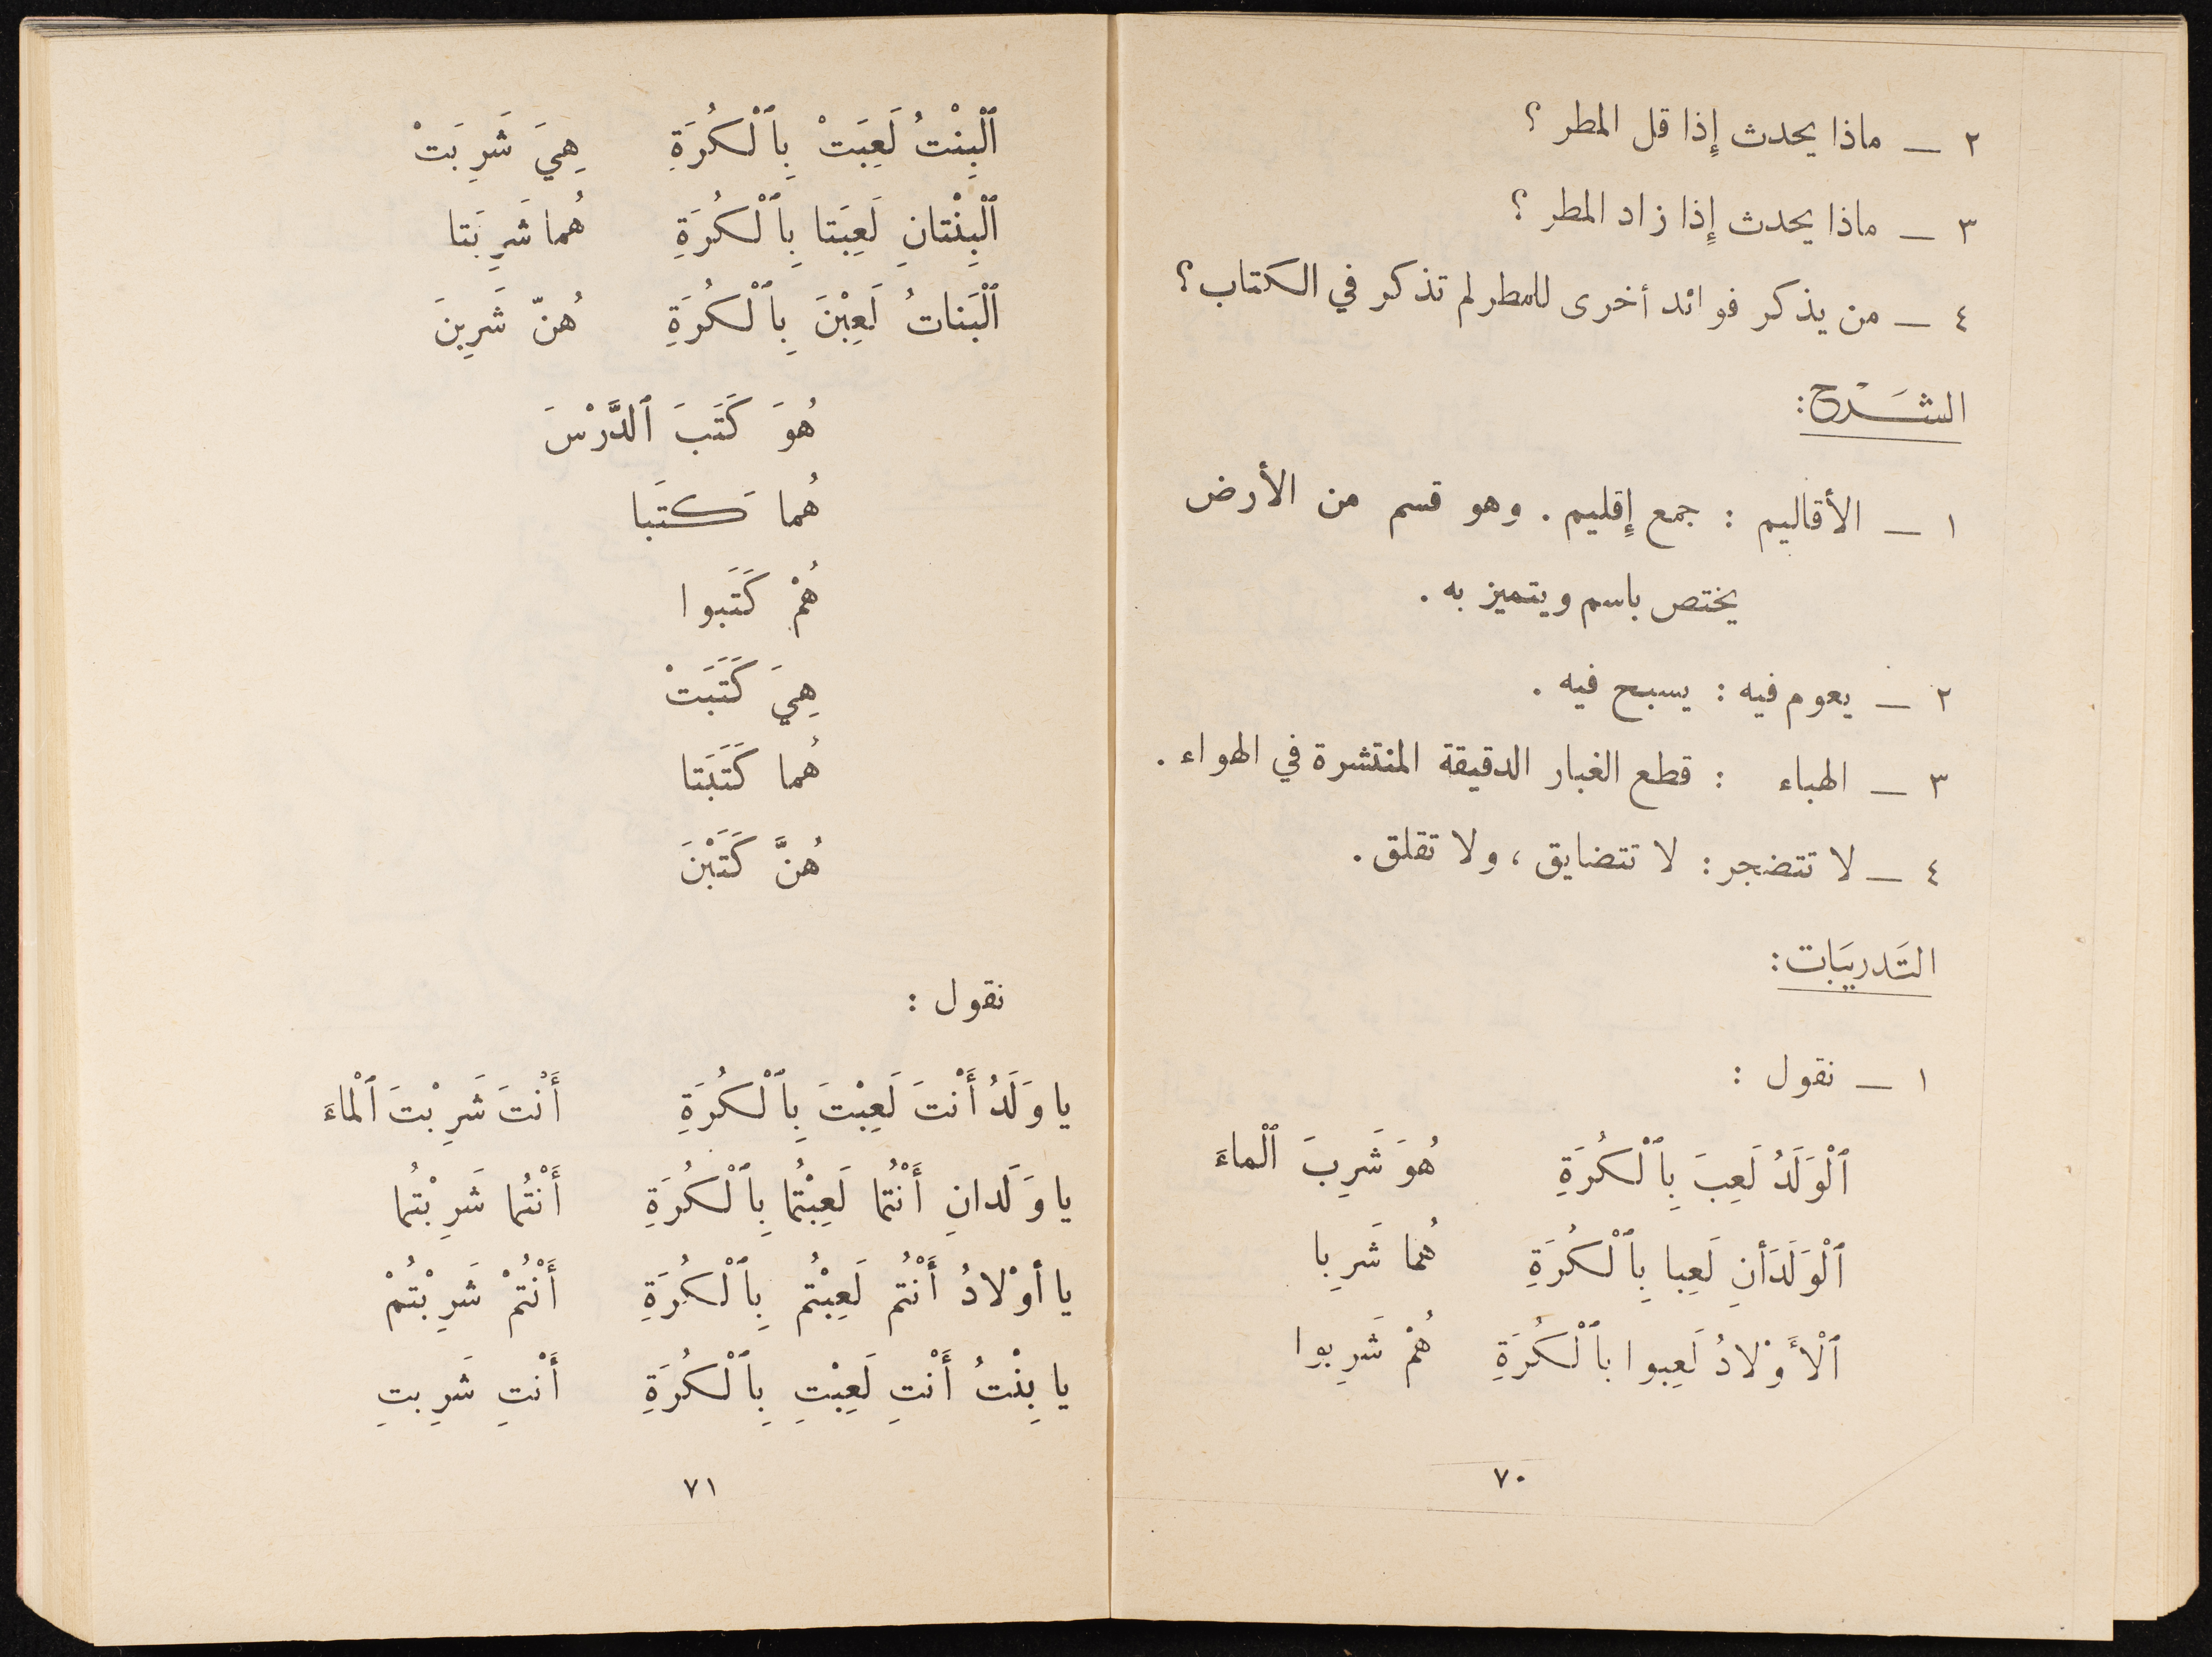 ٢ – ماذا يحدث إِذا قل المطر ؟
٣ – ماذا يحدث إِذا زاد المطر ؟
٤ – من يذكر فوائد أخرى للمطر لم تذكر في الكتاب ؟
الشَّرْح :
١ – الأقاليم : جمع إِقليم . وهو قسم من الأرض
يختص باسم ويتميز به .
٢ – يعوم فيه : يسبح فيه .
٣ – الهباء : قطع الغبار الدقيقة المنتشرة في الهواء .
٤ – لا تتضجر : لا تتضايق ، ولا تقلق .
التَدريبَات :
١ – نقول :
ٱلْوَلَدُ لَعِبَ بِٱلْكُرَةِ هُوَ شَرِبَ ٱلْماءَ
ٱلْوَلَدَأنِ لَعِبا بِٱلْكُرَةِ هُما شَرِبا
ٱلْأَوْلادُ لَعِبوا بٱلْكُرَةِ هُمْ شَرِبوا
٧٠
ٱلْبِنْتُ لَعِبَتْ بِٱلْكُرَةِ هِيَ شَرِبَتْ
ٱلْبِنْتانِ لَعِبَتا بِٱلْكُرَةِ هُما شَرِبَتا
ٱلْبَناتُ لَعِبْنَ بِٱلْكُرَةِ هُنّ شَرِبنَ
هُوَ كَتَبَ ٱلدَّرْسَ
هُما كَتَبا
هُمْ كَتَبوا
هِيَ كَتَبَتْ
هُما كَتَبَتا
هُنَّ كَتَبْنَ
نقول :
يا وَلَدُ أَنْتَ لَعِبْتَ بِٱلْكُرَةِ أَنْتَ شَرِبْتَ ٱلْماءَ
يا وَلَدانِ أَنْتُما لَعِبْتُما بِٱلْكُرَةِ أَنْتُما شَرِبْتُما
يا أوْلادُ أَنْتُم لَعِبْتُم بِٱلْكُرَةِ أَنْتُمْ شَرِبْتُمْ
يا بِنْتُ أَنْتِ لَعِبْتِ بِٱلْكُرَةِ أَنْتِ شَرِبتِ
٧١